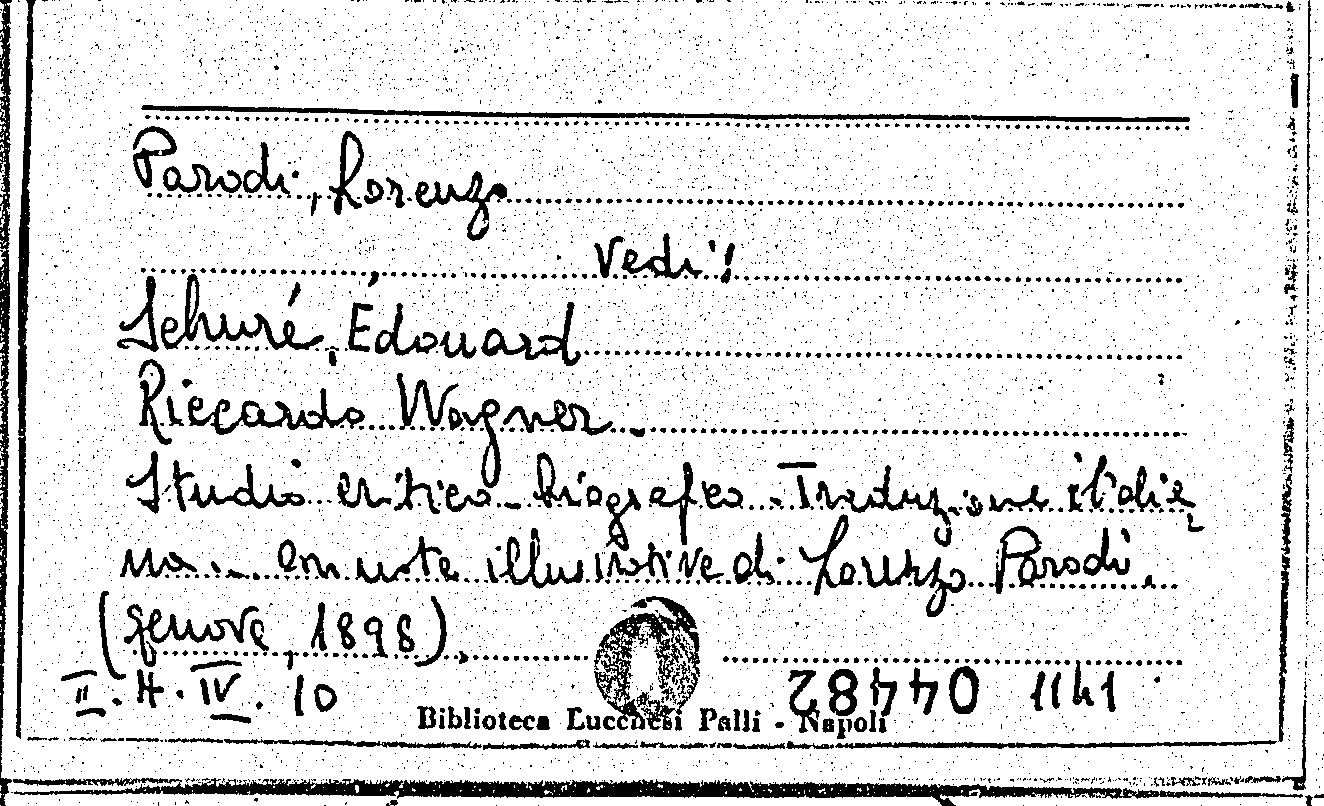 Parodi, Lorenzo
Vedi:
Schuré, Édouard
Riccardo Wagner.
Studio critico-biografico. Traduzione italia
na... con note illustrative di Lorenzo Parodi.
(Genova, 1898).
II. 4. IV. 10
Biblioteca Lucchesi Palli - Napoli